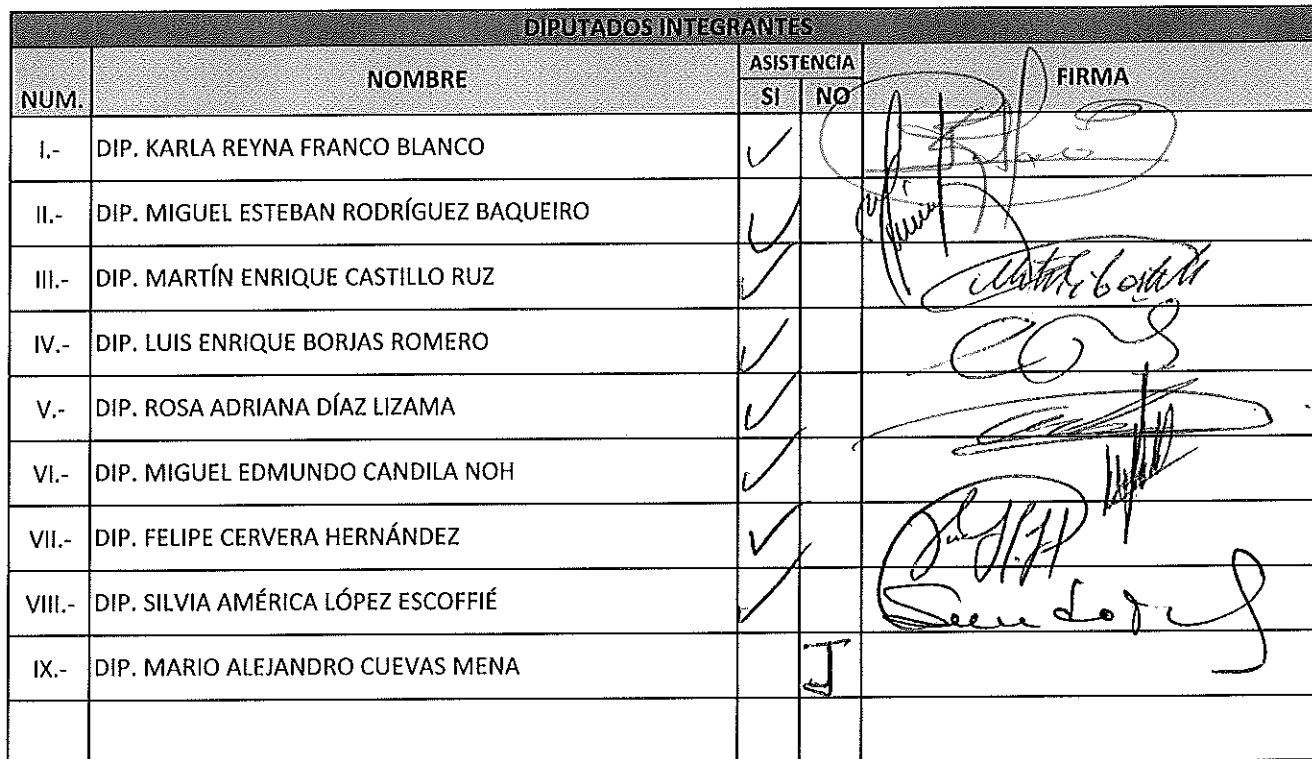 DIPUTADOS INTEGRANTES
NUM. NOMBRE ASISTENCIA FIRMA
SI NO
I.- DIP. KARLA REYNA FRANCO BLANCO ✓
II.- DIP. MIGUEL ESTEBAN RODRÍGUEZ BAQUEIRO ✓
III.- DIP. MARTÍN ENRIQUE CASTILLO RUZ ✓
IV.- DIP. LUIS ENRIQUE BORJAS ROMERO ✓
V.- DIP. ROSA ADRIANA DÍAZ LIZAMA ✓
VI.- DIP. MIGUEL EDMUNDO CANDILA NOH ✓
VII.- DIP. FELIPE CERVERA HERNÁNDEZ ✓
VIII.- DIP. SILVIA AMÉRICA LÓPEZ ESCOFFIÉ ✓
IX.- DIP. MARIO ALEJANDRO CUEVAS MENA J